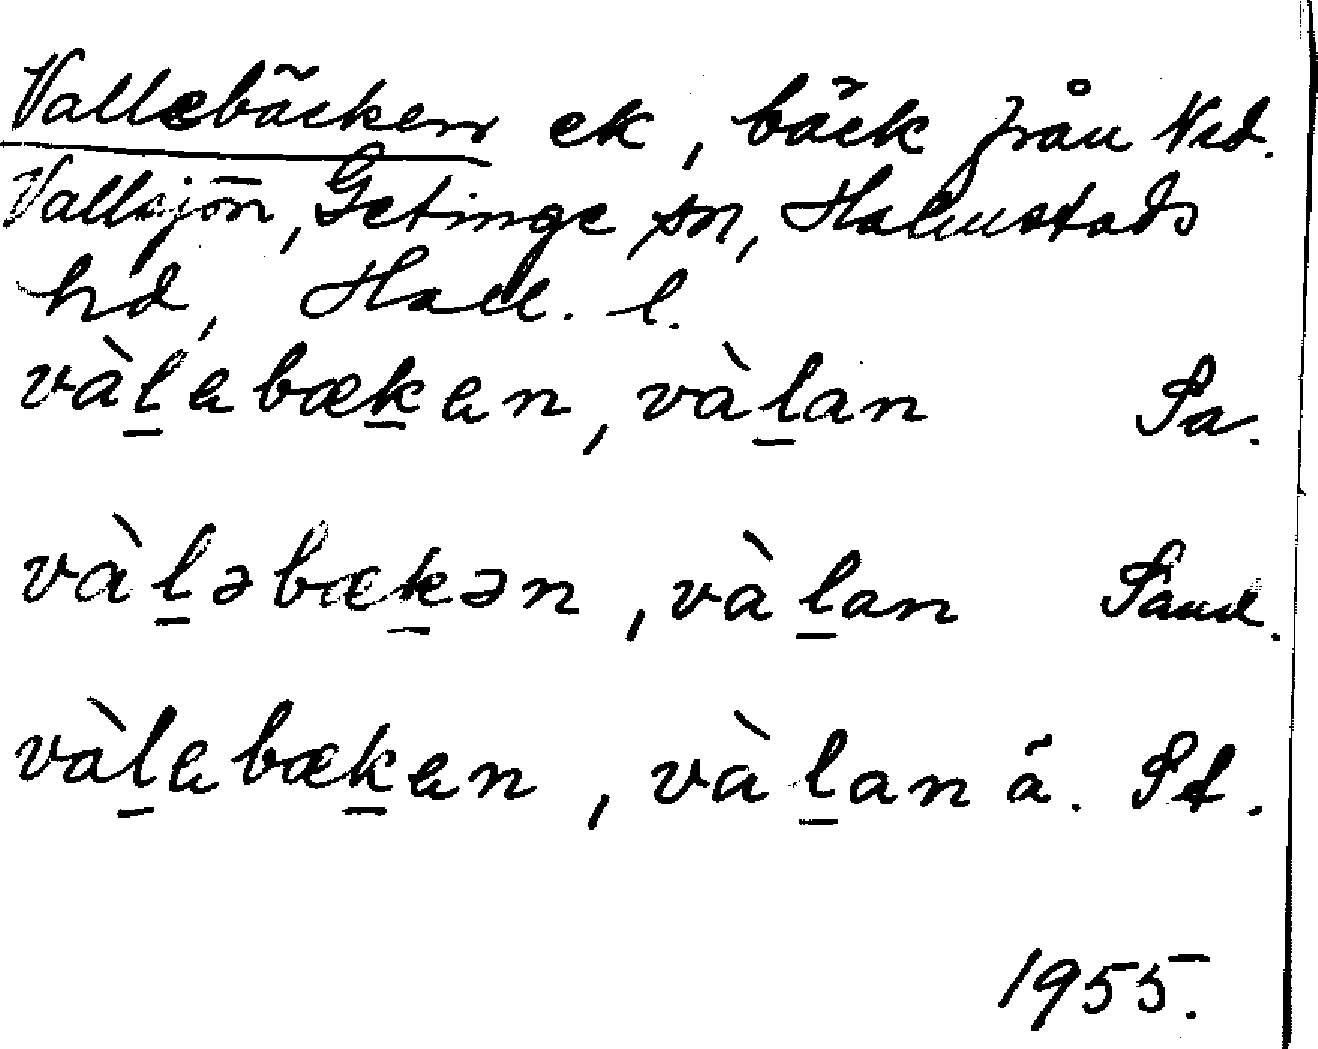 Vallebäcken ek, bäck från Ned.
Vallsjön, Getinge sn, Halmstads
hd, Hall. l.
vàl̲ebæk̲en, vàl̲an Sa.
vàl̲əbæk̲ən, vàl̲an Sand.
vàl̲ebæk̲en, vàl̲an ä. St.
1955.